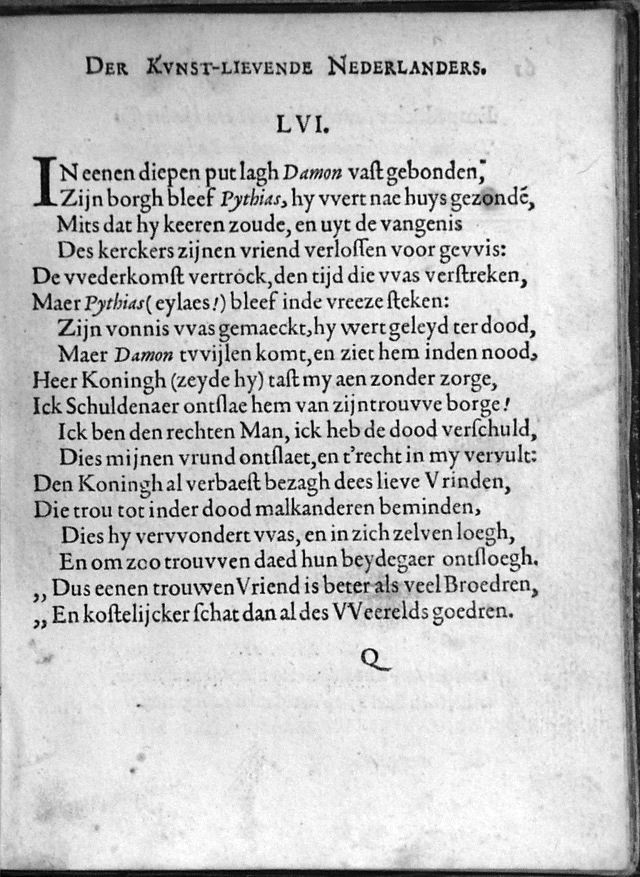 DER KVNST-LIEVENDE NEDERLANDERS.
LVI.
IN eenen diepen put lagh Damon vaſt gebonden,
Zijn borgh bleef Pythias, hy vvert nae huys gezondē,
Mits dat hy keeren zoude, en uyt de vangenis
Des kerckers zijnen vriend verloſſen voor gevvis:
De vvederkomſt vertrock, den tijd die vvas verſtreken,
Maer Pythias (eylaes!) bleef inde vreeze ſteken:
Zijn vonnis vvas gemaeckt, hy wert geleyd ter dood,
Maer Damon tvvijlen komt, en ziet hem inden nood,
Heer Koningh (zeyde hy) taſt my aen zonder zorge,
Ick Schuldenaer ontſlae hem van zijn trouvve borge!
Ick ben den rechten Man, ick heb de dood verſchuld,
Dies mijnen vrund ontſlaet, en t'recht in my vervult:
Den Koningh al verbaeſt bezagh dees lieve Vrinden,
Die trou tot inder dood malkanderen beminden,
Dies hy vervvondert vvas, en in zich zelven loegh,
En om zoo trouvven daed hun beydegaer ontſloegh.
,, Dus eenen trouwen Vriend is beter als veel Broedren,
,, En koſtelijcker ſchat dan al des VVeerelds goedren.
Q